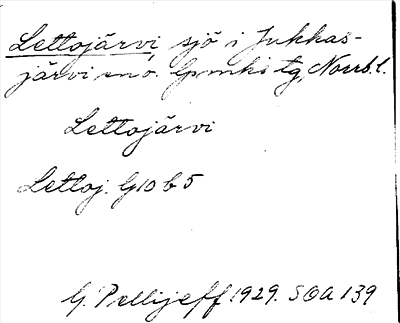 Lettojärvi, sjö i Jukkas-
järvi sn o. lpmks tg, Norrb. l.
Lettojärvi
Lettoj. G10 b 5
G. Pellijeff 1929. SOA 139